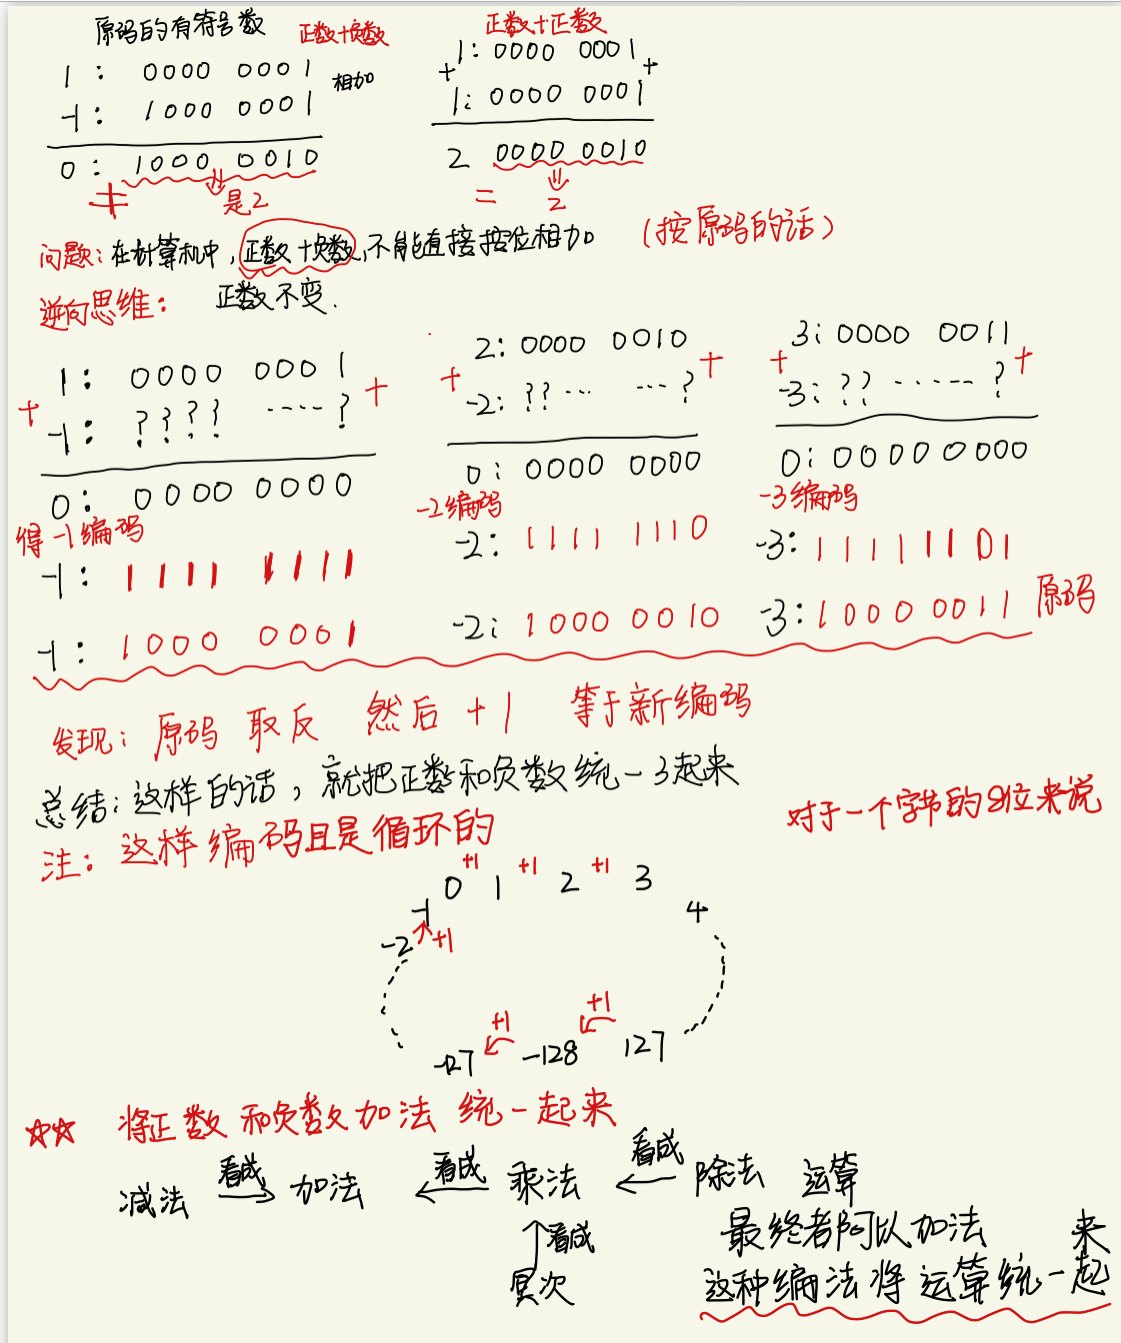 原码的有符号数 正数+负数
1: 0000 0001 相加
-1: 1000 0001
0: 1000 0010
≠ 是2
正数+正数
+ 1: 0000 0001 +
1: 0000 0001
2 0000 0010
= 2
问题: 在计算机中, 正数+负数, 不能直接按位相加 (按原码的话)
逆向思维: 正数不变.
1: 0000 0001
+ -1: ???? ····? +
0: 0000 0000
得-1编码
-1: 1111 1111
-1: 1000 0001
2: 0000 0010
+ -2: ??··· ···? +
0: 0000 0000
-2编码
-2: 1111 1110
-2: 1000 0010
3: 0000 0011
+ -3: ??·····? +
0: 0000 0000
-3编码
-3: 1111 1101
-3: 1000 0011 原码
发现: 原码 取反 然后 +1 等于新编码
总结: 这样的话, 就把正数和负数统一3起来
注: 这样编码且是循环的
对于一个字节的8位来说
+1 +1 +1
-1 0 1 2 3 4
-2 +1
+1 +1
-127 -128 127
☆☆ 将正数和负数加法 统一起来
减法 看成 加法 看成 乘法 看成 除法 运算
看成
幂次
最终都可以加法 来
这种编法将运算统一起